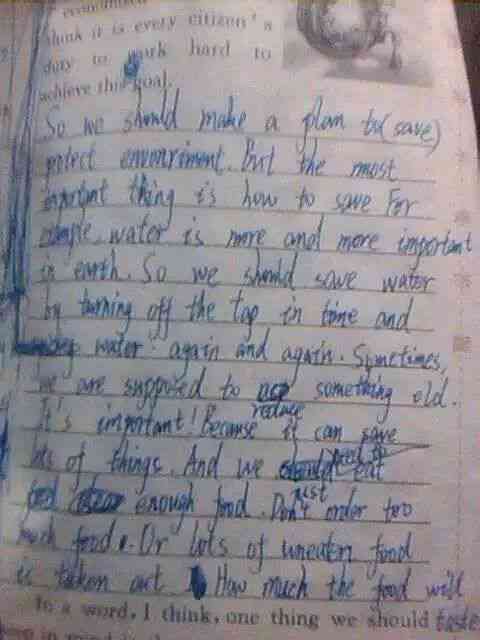 think it is every citizen's
duty to work hard to
achieve this goal.
So we should make a plan to (save)
potect environriment. But the most
important thing is how to save For
example, water is more and more important
in earth. So we should save water
by turning off the tap in time and
water again and again. Sometimes,
we are supposed to something old.
reduce
It's important! Because it can save
lots of things. And we should need to eat
enough food. Don't just order too
much food. Or lots of uneaten food
is taken out How much the food will
In a word, I think, one thing we should taste